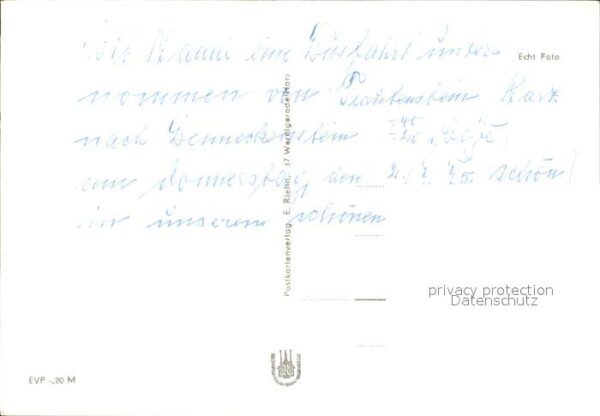 eine Busfahrt unter-
nommen von Trautenstein, Harz
nach Benneckenstein
am Donnerstag, den 75. schön
in unserem schönen
Echt Foto
Postkartenverlag E. Riehn, 37 Wernigerode/Harz
privacy protection
Datenschutz
EVP -,20 M